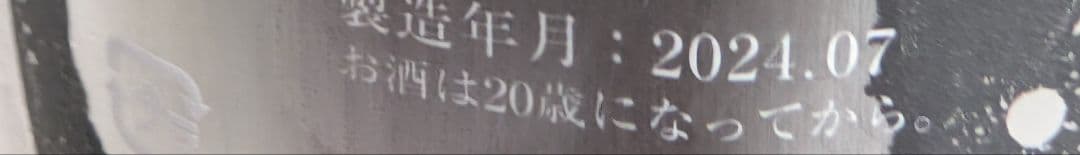 製造年月：2024.07
お酒は20歳になってから。